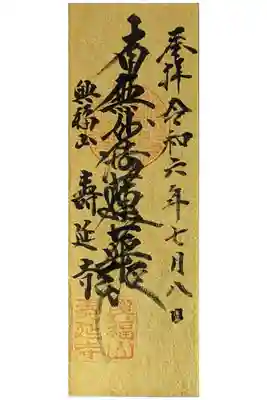 奉拝 令和六年七月八日
南無妙法蓮華経
興福山 壽延寺
壽延寺
興福山